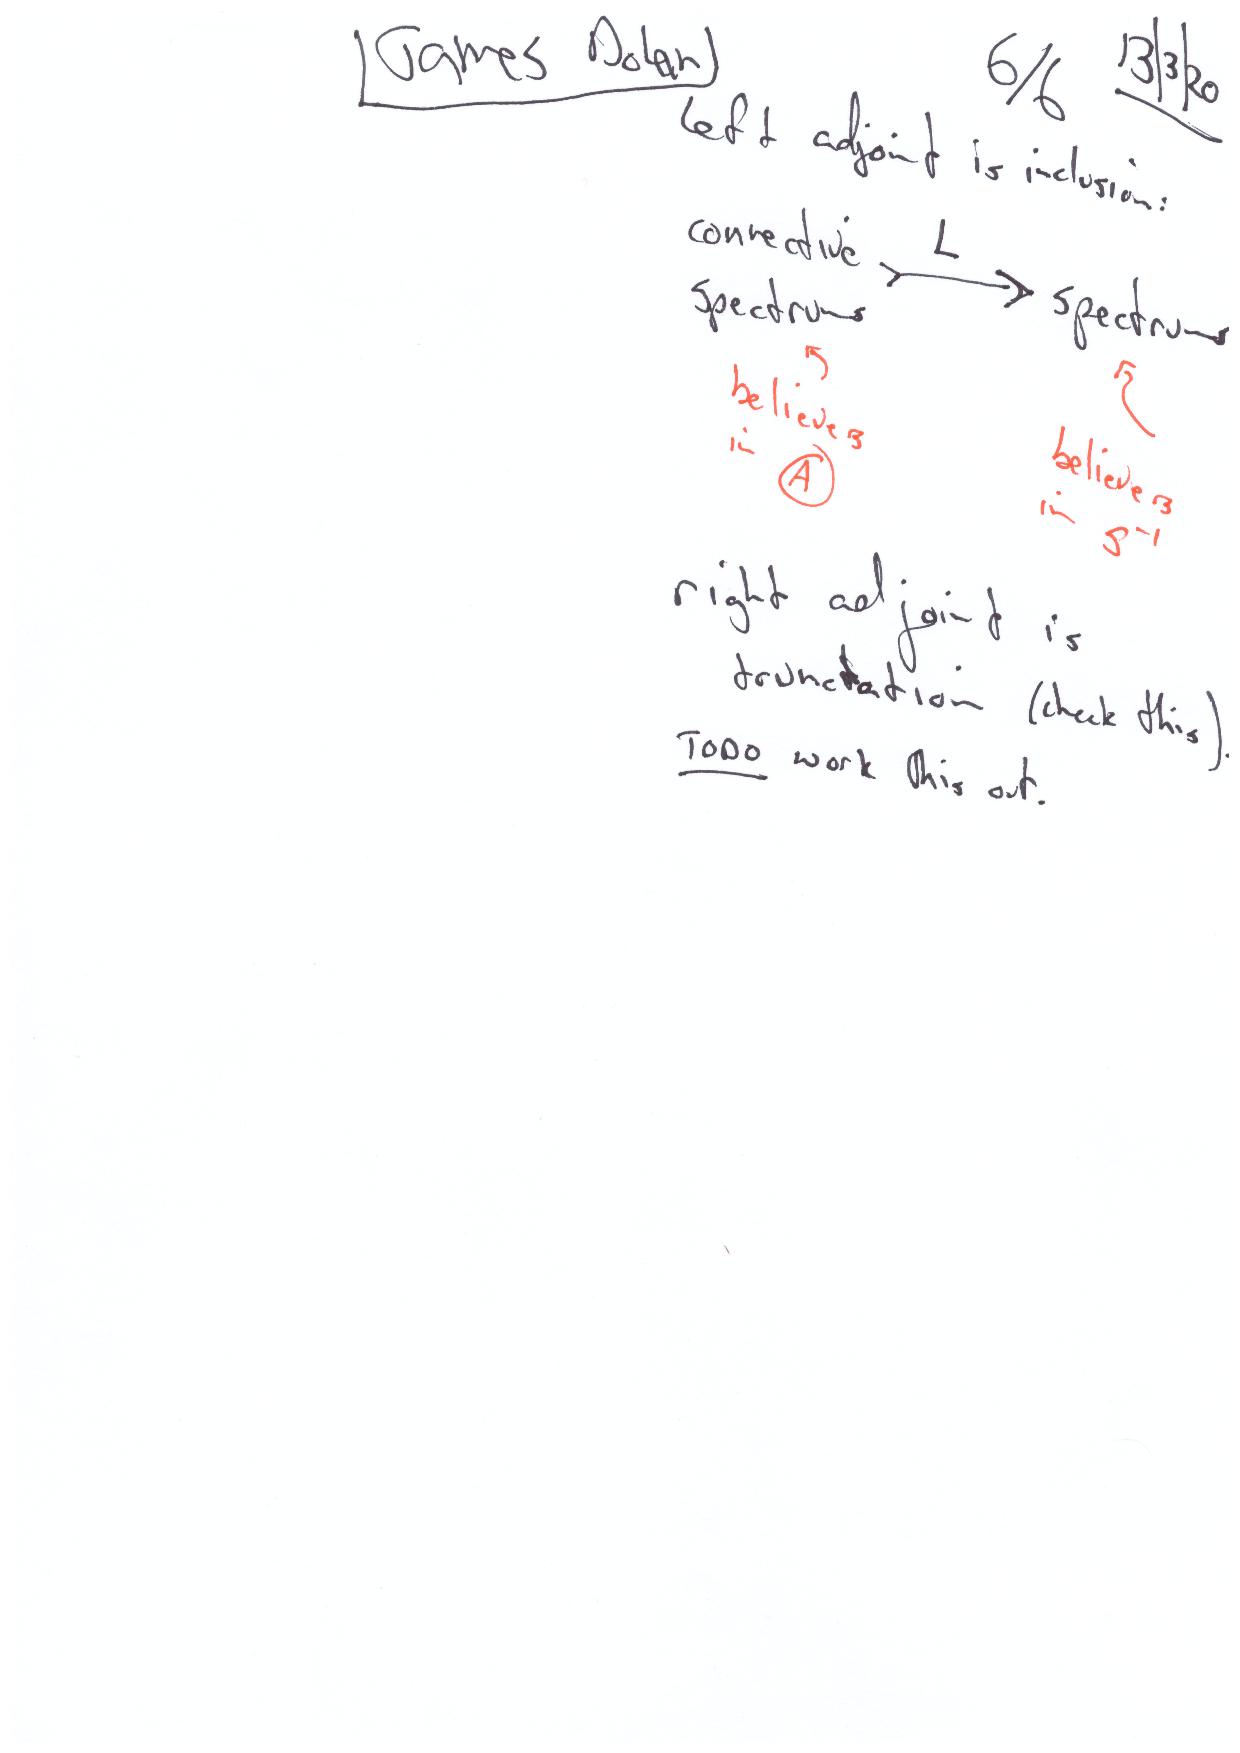 James Dolan
6/6 13/3/20
left adjoint is inclusion:
connective L
spectrums spectrums
believes
in A
believes
in S⁻¹
right adjoint is
truncation (check this).
TODO work this out.